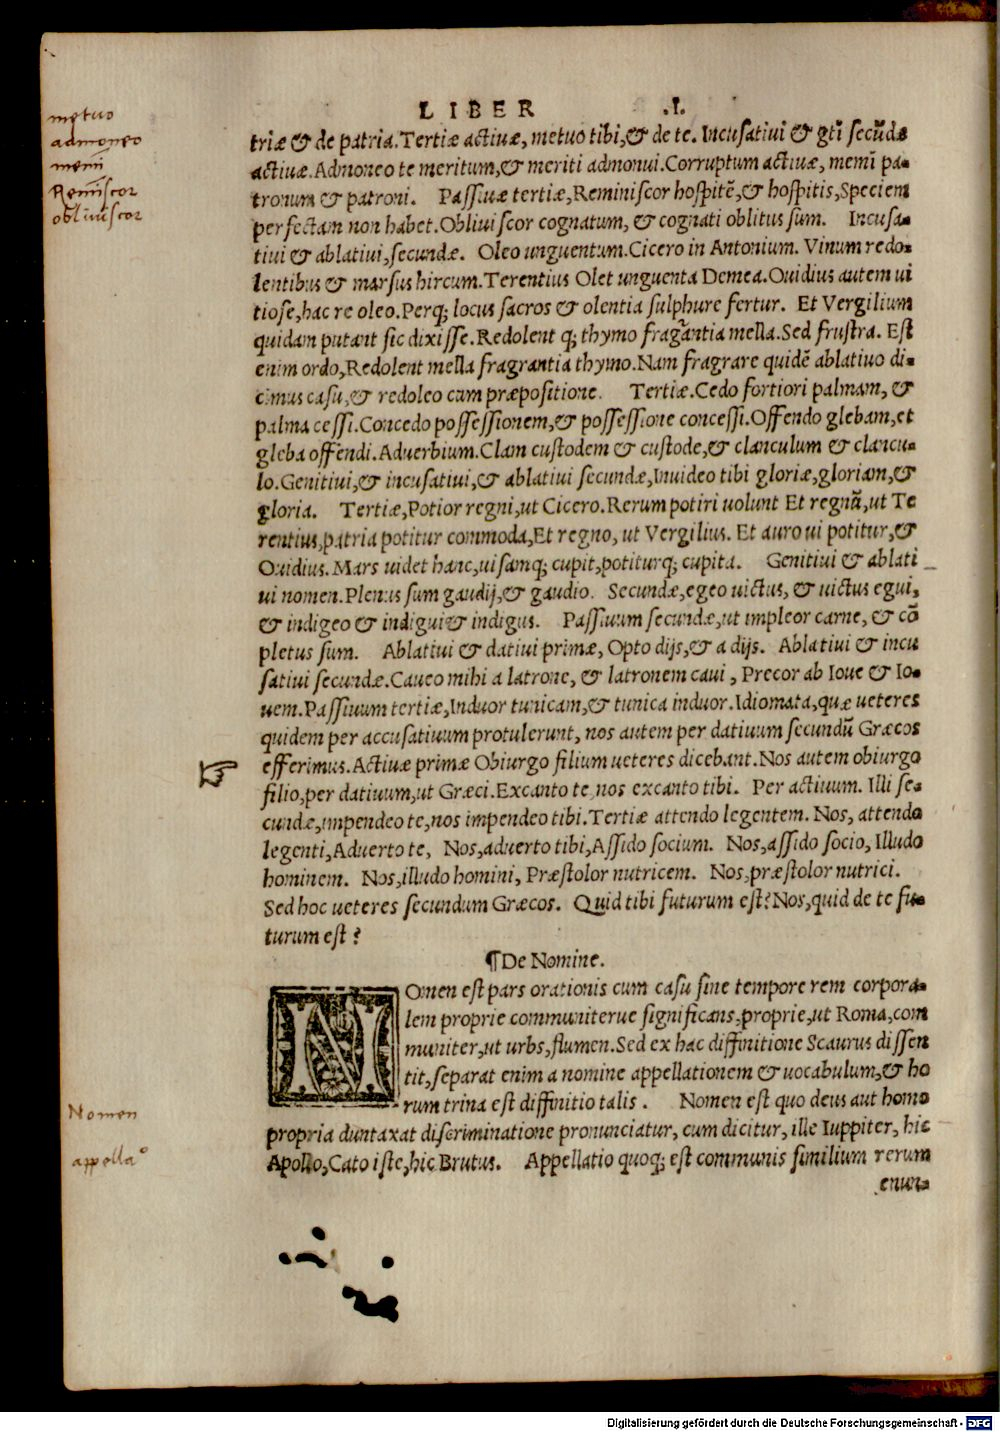 LIBER .I.
metuo
admoneo
memī
Remīscor
obliuiscor
triæ & de patria. Tertiæ actiuæ, metuo tibi, & de te. Incusatiui & gt̄i secūdæ
actiuæ. Admoneo te meritum, & meriti admonui. Corruptum actiuæ, memī pa-
tronum & patroni. Passiuæ tertiæ, Reminiscor hospitē, & hospitis, Speciem
perfectam non habet. Obliuiscor cognatum, & cognati oblitus sum. Incusa-
tiui & ablatiui, secundæ. Oleo unguentum. Cicero in Antonium. Vinum redo-
lentibus & marsus hircum. Terentius Olet unguenta Demea. Ouidius autem ui
tiose, hac re oleo. Perq; locus sacros & olentia sulphure fertur. Et Vergilium
quidam putant sic dixisse. Redolent q; thymo fragrantia mella. Sed frustra. Est
enim ordo, Redolent mella fragrantia thymo. Nam fragrare quidē ablatiuo di-
cimus casu, & redoleo cum præpositione. Tertiæ. Cedo fortiori palmam, &
palma cessi. Concedo possessionem, & possessione concessi. Offendo glebam, et
gleba offendi. Aduerbium. Clam custodem & custode, & clanculum & clancu-
lo. Genitiui, & incusatiui, & ablatiui secundæ, Inuideo tibi gloriæ, gloriam, &
gloria. Tertiæ, Potior regni, ut Cicero. Rerum potiri uolunt Et regnū, ut Te
rentius, patria potitur commoda, Et regno, ut Vergilius. Et auro ui potitur, &
Ouidius. Mars uidet hanc, uisamq; cupit, potiturq; cupita. Genitiui & ablati
ui nomen. Plenus sum gaudij, & gaudio. Secundæ, egeo uictus, & uictus egui,
& indigeo & indigui & indigus. Passiuum secundæ, ut impleor carne, & cō
pletus sum. Ablatiui & datiui primæ, Opto dijs, & a dijs. Ablatiui & incu
satiui secundæ. Caueo mihi a latrone, & latronem caui, Precor ab Ioue & Io-
uem. Passiuum tertiæ, Induor tunicam, & tunica induor. Idiomata, quæ ueteres
quidem per accusatiuum protulerunt, nos autem per datiuum secundū Græcos
efferimus. Actiuæ primæ Obiurgo filium ueteres dicebant. Nos autem obiurgo
filio, per datiuum, ut Græci. Excanto te, nos excanto tibi. Per actiuum. Illi se-
cundæ, impendeo te, nos impendeo tibi. Tertiæ attendo legentem. Nos, attendo
legenti, Aduerto te, Nos, aduerto tibi, Assido socium. Nos, assido socio, Illudo
hominem. Nos, illudo homini, Præstolor nutricem. Nos, præstolor nutrici.
Sed hoc ueteres secundum Græcos. Quid tibi futurum est? Nos, quid de te fu-
turum est?
¶De Nomine.
NOmen est pars orationis cum casu sine tempore rem corpora-
lem proprie communiterue significans, proprie, ut Roma, com
muniter, ut urbs, flumen. Sed ex hac diffinitione Scaurus dissen
tit, separat enim a nomine appellationem & uocabulum, & ho
rum trina est diffinitio talis. Nomen est quo deus aut homo
propria duntaxat discriminatione pronunciatur, cum dicitur, ille Iuppiter, hic
Apollo, Cato iste, hic Brutus. Appellatio quoq; est communis similium rerum
enun-
Nomen
appellaº
Digitalisierung gefördert durch die Deutsche Forschungsgemeinschaft - DFG